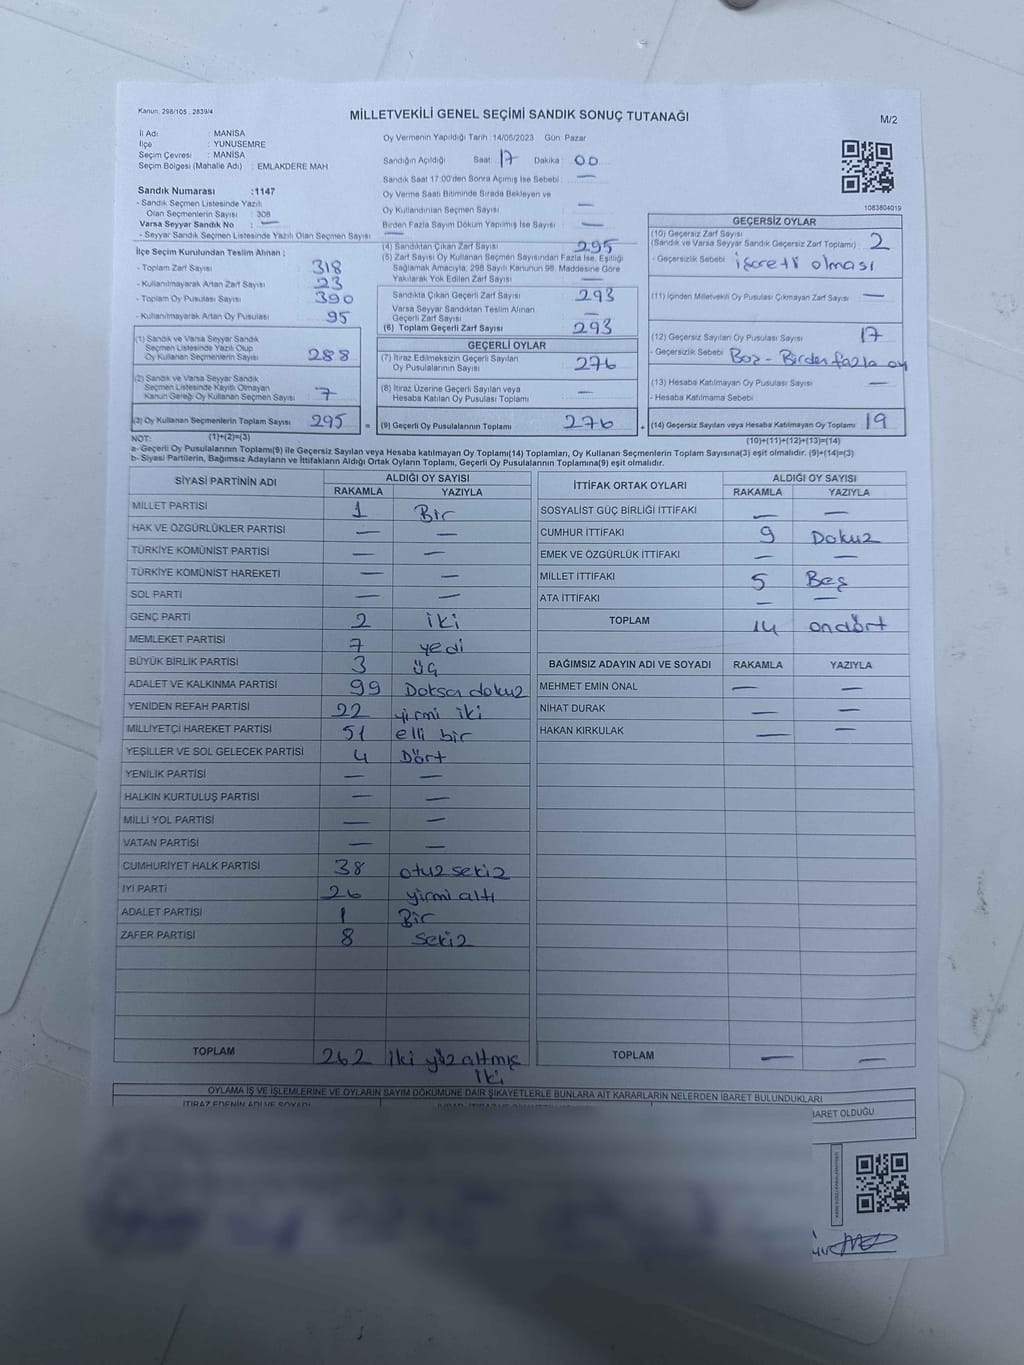 Kanun: 298/105 , 2839/4
MİLLETVEKİLİ GENEL SEÇİMİ SANDIK SONUÇ TUTANAĞI
M/2
İl Adı : MANİSA
İlçe : YUNUSEMRE
Seçim Çevresi : MANİSA
Seçim Bölgesi (Mahalle Adı) : EMLAKDERE MAH
Sandık Numarası :1147
- Sandık Seçmen Listesinde Yazılı
Olan Seçmenlerin Sayısı : 308
Varsa Seyyar Sandık No : —
- Seyyar Sandık Seçmen Listesinde Yazılı Olan Seçmen Sayısı —
İlçe Seçim Kurulundan Teslim Alınan ;
- Toplam Zarf Sayısı 318
- Kullanılmayarak Artan Zarf Sayısı 23
- Toplam Oy Pusulası Sayısı 390
- Kullanılmayarak Artan Oy Pusulası 95
(1) Sandık ve Varsa Seyyar Sandık
Seçmen Listesinde Yazılı Olup
Oy Kullanan Seçmenlerin Sayısı 288
(2) Sandık ve Varsa Seyyar Sandık
Seçmen Listesinde Kayıtlı Olmayan
Kanun Gereği Oy Kullanan Seçmen Sayısı 7
(3) Oy Kullanan Seçmenlerin Toplam Sayısı 295 =
Oy Vermenin Yapıldığı Tarih :14/05/2023 Gün: Pazar
Sandığın Açıldığı Saat 17 Dakika : 00
Sandık Saat 17:00'den Sonra Açılmış İse Sebebi : —
Oy Verme Saati Bitiminde Sırada Bekleyen ve
Oy Kullandırılan Seçmen Sayısı : —
Birden Fazla Sayım Döküm Yapılmış İse Sayısı : —
(4) Sandıktan Çıkan Zarf Sayısı 295
(5) Zarf Sayısı Oy Kullanan Seçmen Sayısından Fazla İse, Eşitliği
Sağlamak Amacıyla; 298 Sayılı Kanunun 98. Maddesine Göre
Yakılarak Yok Edilen Zarf Sayısı —
Sandıkta Çıkan Geçerli Zarf Sayısı 293
Varsa Seyyar Sandıktan Teslim Alınan
Geçerli Zarf Sayısı —
(6) Toplam Geçerli Zarf Sayısı 293
GEÇERLİ OYLAR
(7) İtiraz Edilmeksizin Geçerli Sayılan
Oy Pusulalarının Sayısı 276
(8) İtiraz Üzerine Geçerli Sayılan veya
Hesaba Katılan Oy Pusulası Toplamı —
(9) Geçerli Oy Pusulalarının Toplamı 276 +
1083804019
GEÇERSİZ OYLAR
(10) Geçersiz Zarf Sayısı
(Sandık ve Varsa Seyyar Sandık Geçersiz Zarf Toplamı) 2
- Geçersizlik Sebebi işareti olması
(11) İçinden Milletvekili Oy Pusulası Çıkmayan Zarf Sayısı —
(12) Geçersiz Sayılan Oy Pusulası Sayısı 17
- Geçersizlik Sebebi Boş - Birden fazla oy
(13) Hesaba Katılmayan Oy Pusulası Sayısı —
- Hesaba Katılmama Sebebi
(14) Geçersiz Sayılan veya Hesaba Katılmayan Oy Toplamı 19
NOT: (1)+(2)=(3) (10)+(11)+(12)+(13)=(14)
a- Geçerli Oy Pusulalarının Toplamı(9) ile Geçersiz Sayılan veya Hesaba katılmayan Oy Toplamı(14) Toplamları, Oy Kullanan Seçmenlerin Toplam Sayısına(3) eşit olmalıdır. (9)+(14)=(3)
b- Siyasi Partilerin, Bağımsız Adayların ve İttifakların Aldığı Ortak Oyların Toplamı, Geçerli Oy Pusulalarının Toplamına(9) eşit olmalıdır.
SİYASİ PARTİNİN ADI ALDIĞI OY SAYISI
RAKAMLA YAZIYLA
MİLLET PARTİSİ 1 Bir
HAK VE ÖZGÜRLÜKLER PARTİSİ — —
TÜRKİYE KOMÜNİST PARTİSİ — —
TÜRKİYE KOMÜNİST HAREKETİ — —
SOL PARTİ — —
GENÇ PARTİ 2 iki
MEMLEKET PARTİSİ 7 yedi
BÜYÜK BİRLİK PARTİSİ 3 üç
ADALET VE KALKINMA PARTİSİ 99 Doksan dokuz
YENİDEN REFAH PARTİSİ 22 yirmi iki
MİLLİYETÇİ HAREKET PARTİSİ 51 elli bir
YEŞİLLER VE SOL GELECEK PARTİSİ 4 Dört
YENİLİK PARTİSİ — —
HALKIN KURTULUŞ PARTİSİ — —
MİLLİ YOL PARTİSİ — —
VATAN PARTİSİ — —
CUMHURİYET HALK PARTİSİ 38 otuz sekiz
İYİ PARTİ 26 yirmi altı
ADALET PARTİSİ 1 Bir
ZAFER PARTİSİ 8 sekiz
TOPLAM 262 iki yüz altmış
iki
İTTİFAK ORTAK OYLARI ALDIĞI OY SAYISI
RAKAMLA YAZIYLA
SOSYALİST GÜÇ BİRLİĞİ İTTİFAKI — —
CUMHUR İTTİFAKI 9 Dokuz
EMEK VE ÖZGÜRLÜK İTTİFAKI — —
MİLLET İTTİFAKI 5 Beş
ATA İTTİFAKI — —
TOPLAM 14 ondört
BAĞIMSIZ ADAYIN ADI VE SOYADI RAKAMLA YAZIYLA
MEHMET EMİN ÖNAL — —
NİHAT DURAK — —
HAKAN KIRKULAK — —
TOPLAM — —
OYLAMA İŞ VE İŞLEMLERİNE VE OYLARIN SAYIM DÖKÜMÜNE DAİR ŞİKAYETLERLE BUNLARA AİT KARARLARIN NELERDEN İBARET BULUNDUKLARI
İTİRAZ EDENİN ADI VE SOYADI
BARET OLDUĞU